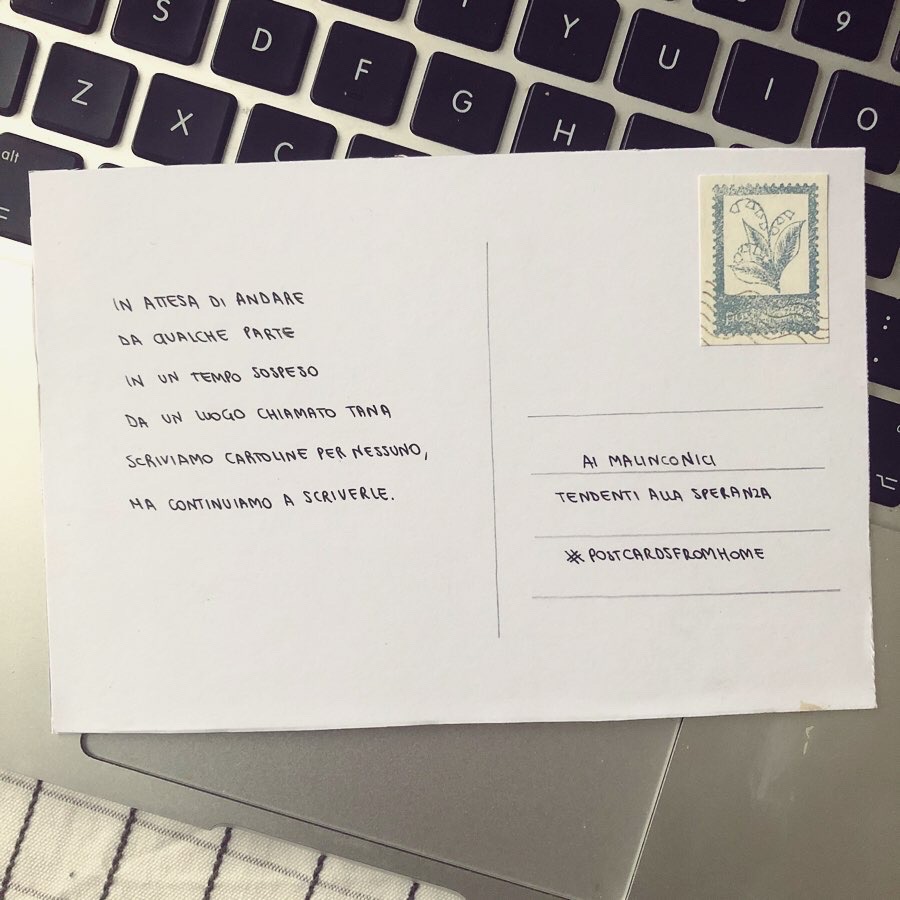 S
D
Y
U
I
9
O
Z
X
C
F
G
H
alt
IN ATTESA DI ANDARE
DA QUALCHE PARTE
IN UN TEMPO SOSPESO
DA UN LUOGO CHIAMATO TANA
SCRIVIAMO CARTOLINE PER NESSUNO,
MA CONTINUIAMO A SCRIVERLE.
AI MALINCONICI
TENDENTI ALLA SPERANZA
#POSTCARDSFROMHOME